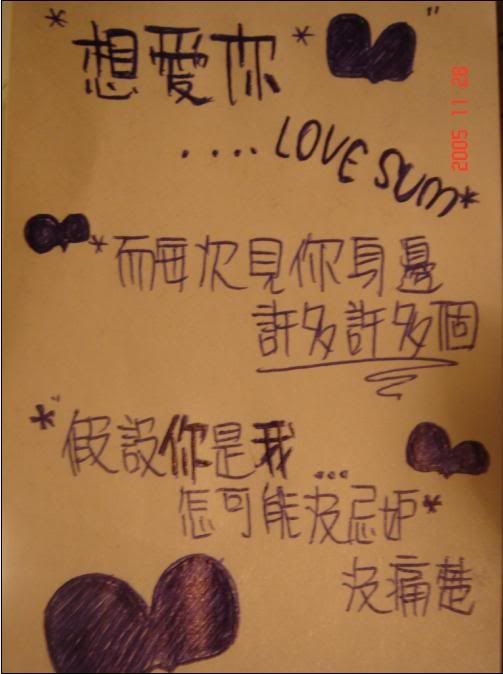 *想愛你*"
....LOVE SUM*
2005 11 28
*而每次見你身邊
許多許多個
*"假設你是我...
怎可能沒忌妒*
沒痛楚